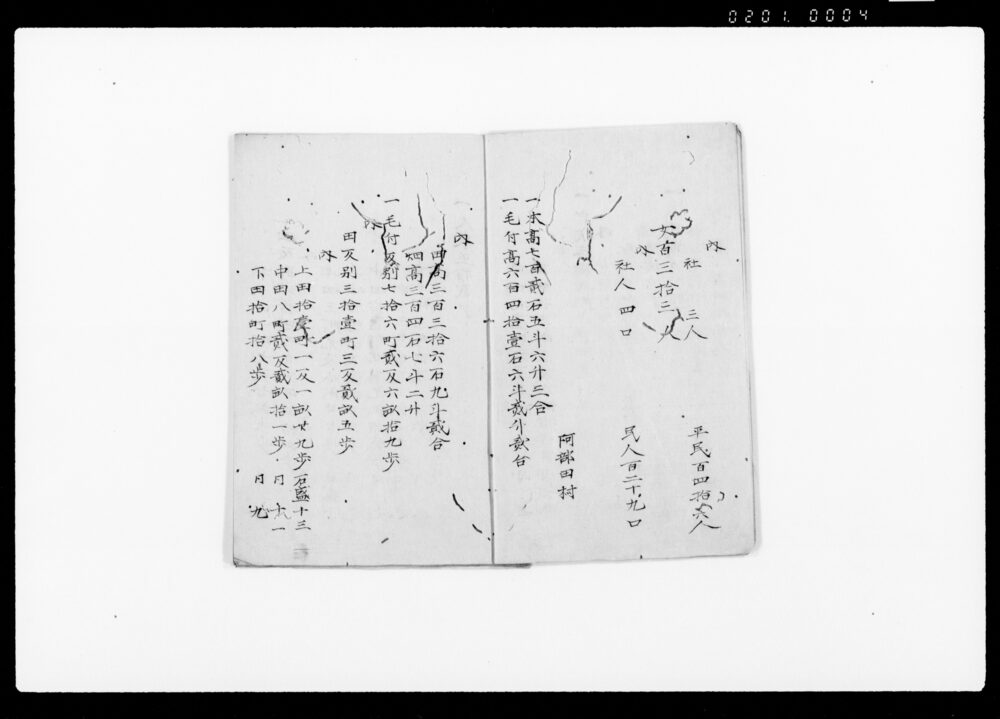 0201.0004
内
社 三人 平民百四拾六人
女百三拾三人
内
社人 四口 民人百二十九口
阿部田村
一本高七百貳石五斗六升三合
一毛付高六百四拾壹石六斗貳升貳合
内
田高三百三拾六石九斗貳合
畑高三百四石七斗二升
一毛付反别七拾六町貳反六畝拾九歩
内
田反别三拾壹町三反貳畝五歩
内
上田拾壹町一反一畝廿九歩 石盛十三
中田八町貳反貳畝拾一歩 月 十一
下田拾町拾八歩 月 九